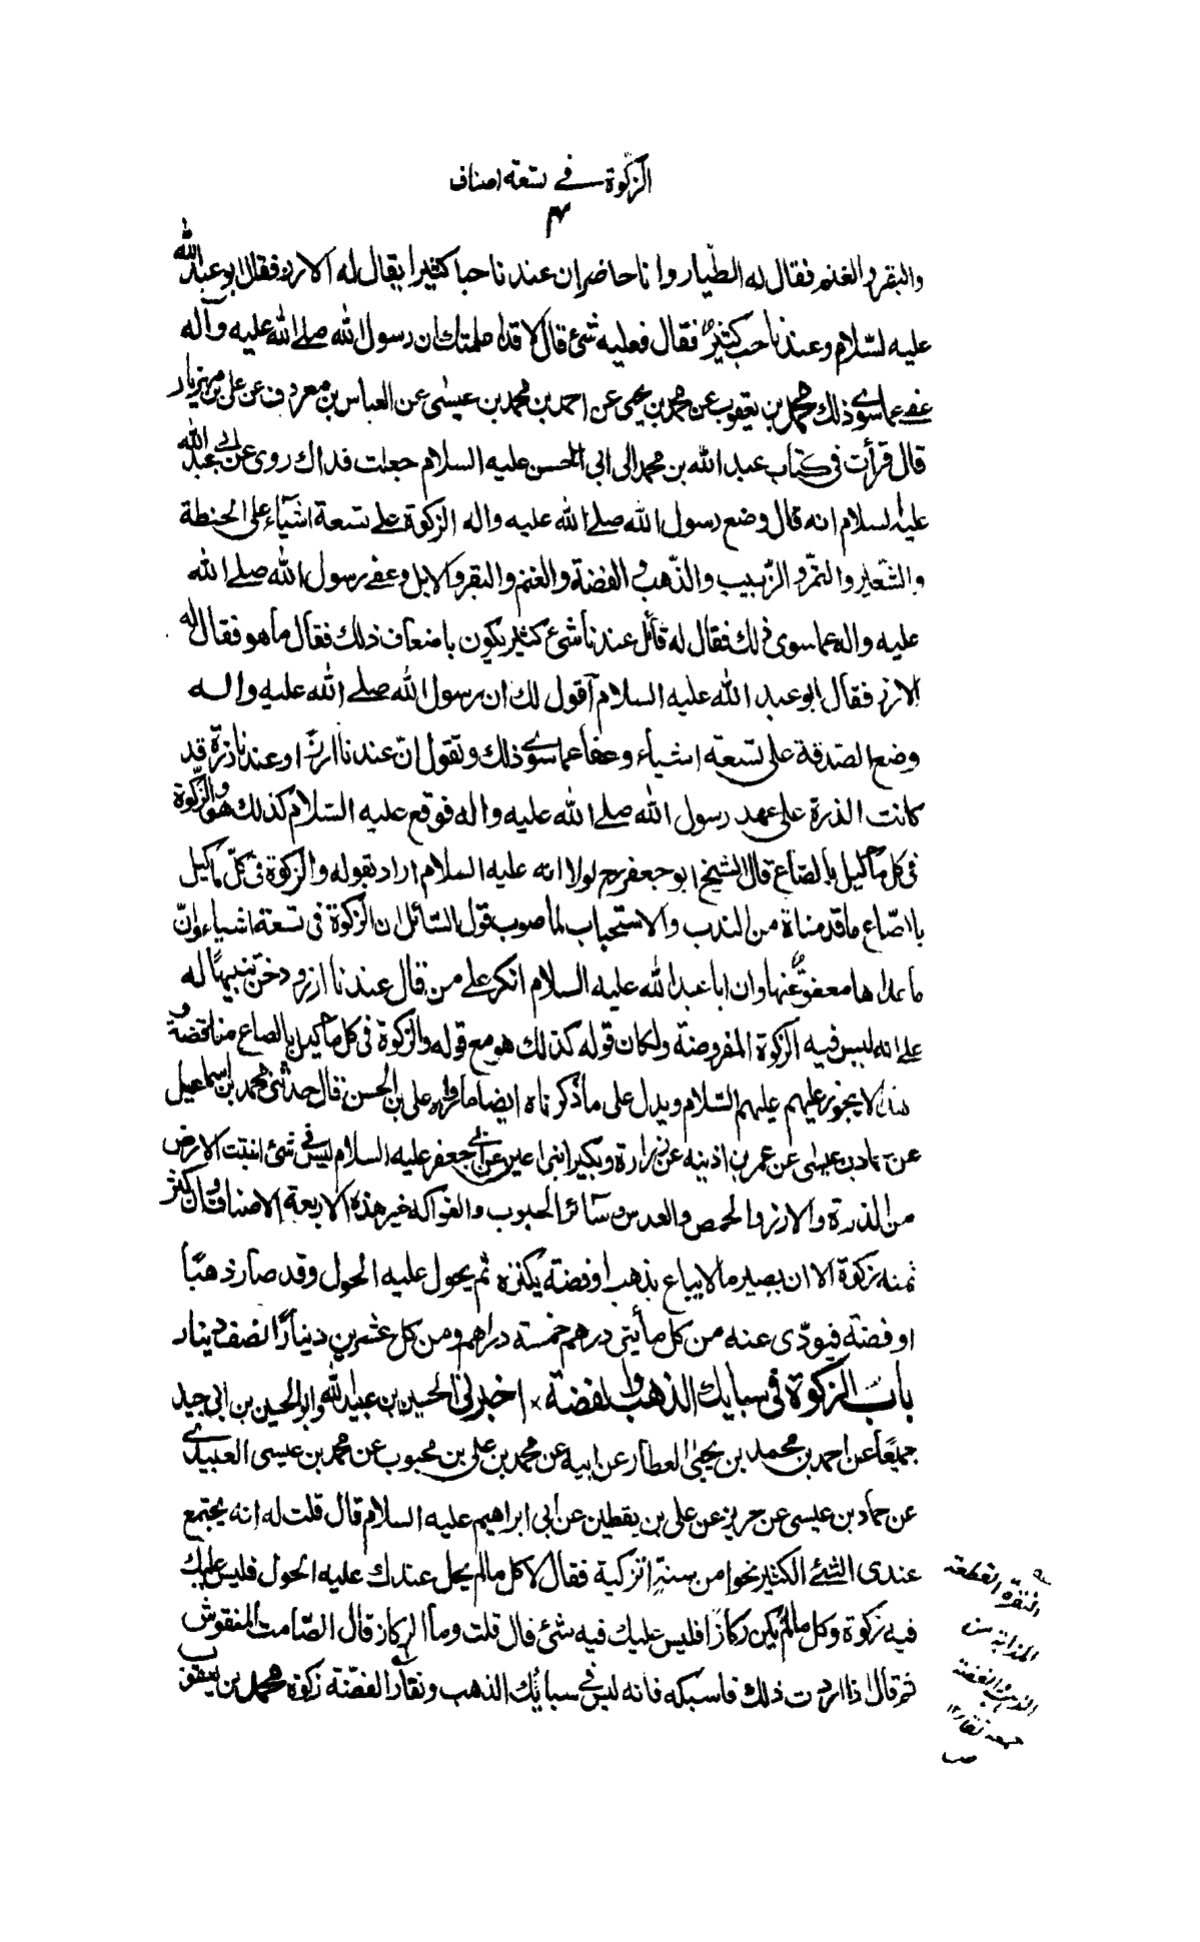 الزكوة في تسعة اصناف
۴
والبقر والغنم فقال له الطيار وانا حاضر ان عندنا حبا كثيرا يقال له الارز فقال ابو عبد الله
عليه السلام وعندنا حب كثير فقال فعليه شئ قال لا قد اعلمتك ان رسول الله صلے الله عليه وآله
عفے عما سوے ذلك محمد بن يعقوب عن محمد بن يحيى عن احمد بن محمد بن عيسى عن العباس بن معروف عن على بن مهزيار
قال قرأت في كتاب عبد الله بن محمد الى ابى الحسن عليه السلام جعلت فداك روى عن ابى عبد الله
عليه السلام انه قال وضع رسول الله صلے الله عليه واله الزكوة على تسعة اشياء على الحنطة
والشعير والتمر والزبيب والذهب والفضة والغنم والبقر والابل وعفے رسول الله صلے الله
عليه واله عما سوى ذلك فقال له قائل عندنا شئ كثير يكون باضعاف ذلك فقال ما هو فقال له
الارز فقال ابو عبد الله عليه السلام اقول لك ان رسول الله صلے الله عليه واله
وضع الصدقة على تسعة اشياء وعفا عما سوے ذلك وتقول انّ عندنا ارز او عندنا ذرة قد
كانت الذرة على عهد رسول الله صلے الله عليه واله فوقع عليه السلام كذلك هو والزكوة
في كل ما كيل بالصاع قال الشيخ ابو جعفر رح لولا انه عليه السلام اراد بقوله والزكوة في كلّ ما كيل
بالصّاع ما قدمناه من الندب والاستحباب لما صوب قول السّائل ان الزكوة فى تسعة اشياء وانّ
ما عداها معفوّ عنها وان ابا عبد الله عليه السلام انكر على من قال عندنا ارز ودخن تنبيها له
على انه ليس فيه الزكوة المفروضة ولكان قوله كذلك هو مع قوله والزكوة فى كل ما كيل بالصاع مناقضة و
ذلك لا يجوز عليهم عليهم السّلام ويدل على ما ذكرناه ايضا ما رواه على بن الحسن قال حدثنى محمد بن اسماعيل
عن حماد بن عيسى عن عمر بن اذينه عن زرارة وبكير ابنى اعين عن ابى جعفر عليه السلام ليس فى شئ انبتت الارض
من الذرة والارز والحمص والعدس وسائر الحبوب والفواكه غير هذه الاربعة الاصناف وان كثر
ثمنه زكوة الا ان يصير مالا يباع بذهب او فضة يكنزه ثم يحول عليه الحول وقد صار ذهبًا
او فضة فيودّى عنه من كل مأيتى درهم خمسة دراهم ومن كل عشرين دينارًا نصف دينار
باب الزكوة فى سبايك الذهب والفضة × اخبرنى الحسين بن عبيد الله وابو الحسين بن ابى جيد
جميعًا عن احمد بن محمد بن يحيى العطار عن ابيه عن محمد بن على بن محبوب عن محمد بن عيسى العبيدے
عن حماد بن عيسى عن حريز عن على بن يقطين عن ابى ابراهيم عليه السلام قال قلت له انه يجتمع
عندى الشئے الكثير نحوا من سنة انزكيه فقال لا كل مالم يحل عندك عليه الحول فليس عليك
فيه زكوة وكل مالم يكن ركازا فليس عليك فيه شئ قال قلت وما الركاز قال الصّامت المنقوش
ثم قال اذا اردت ذلك فاسبكه فانه ليس فى سبائك الذهب ونقار الفضّة زكوة محمد بن يعقوب
النقرة القطعة
المذابة من
الذهب والفضة
جمعه نقار ۱۲
صب